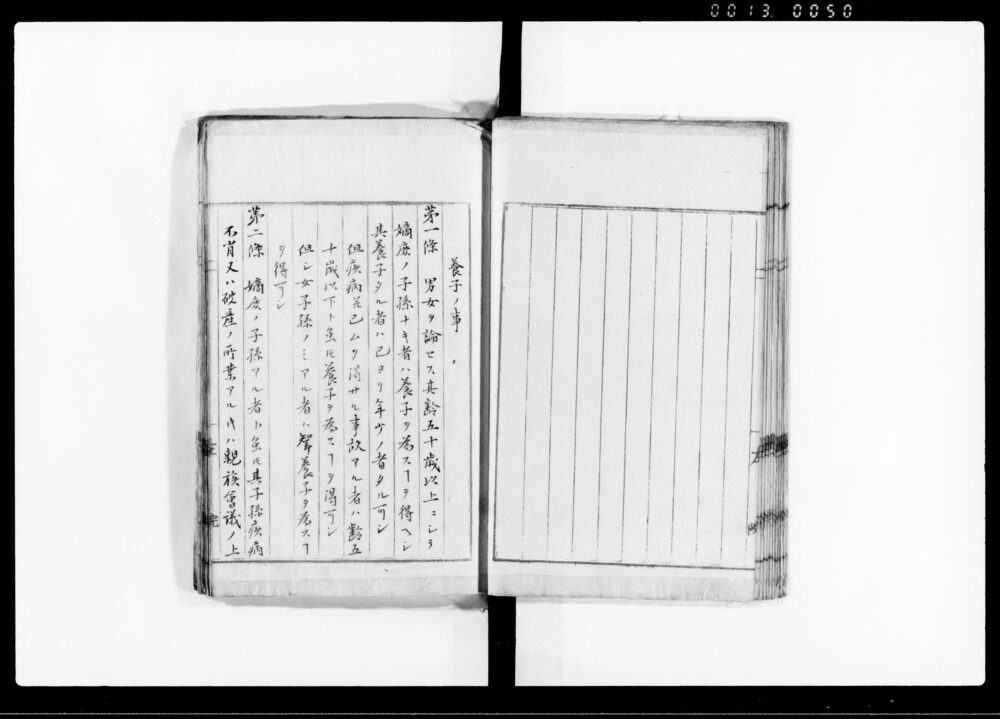 0013 0050
養子ノ事
第一條 男女ヲ論セス其齢五十歳以上ニシテ
嫡庶ノ子孫ナキ者ハ養子ヲ為スヿヲ得ヘシ
其養子タル者ハ己ヨリ年少ノ者タル可シ
但疾病等已ムヲ得サル事故アル者ハ齢五
十歳以下ト雖𪜈養子ヲ為スヿヲ得可シ
但シ女子孫ノミアル者ハ壻養子ヲ為スヿ
ヲ得可シ
第二條 嫡庶ノ子孫アル者ト雖𪜈其子孫疾病
不肖又ハ破産ノ所業アルキハ親族會議ノ上